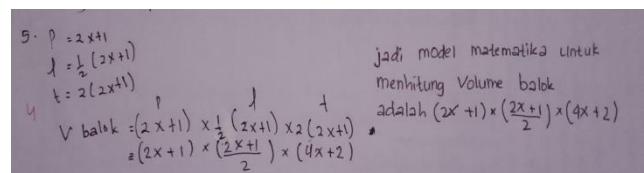 5. P = 2x+1
l = 1/2 (2x+1)
t = 2(2x+1)
4
p l t
V balok = (2x+1) x 1/2 (2x+1) x 2(2x+1)
= (2x+1) x (2x+1/2) x (4x+2)
jadi model matematika untuk
menhitung Volume balok
adalah (2x+1) x (2x+1/2) x (4x+2)